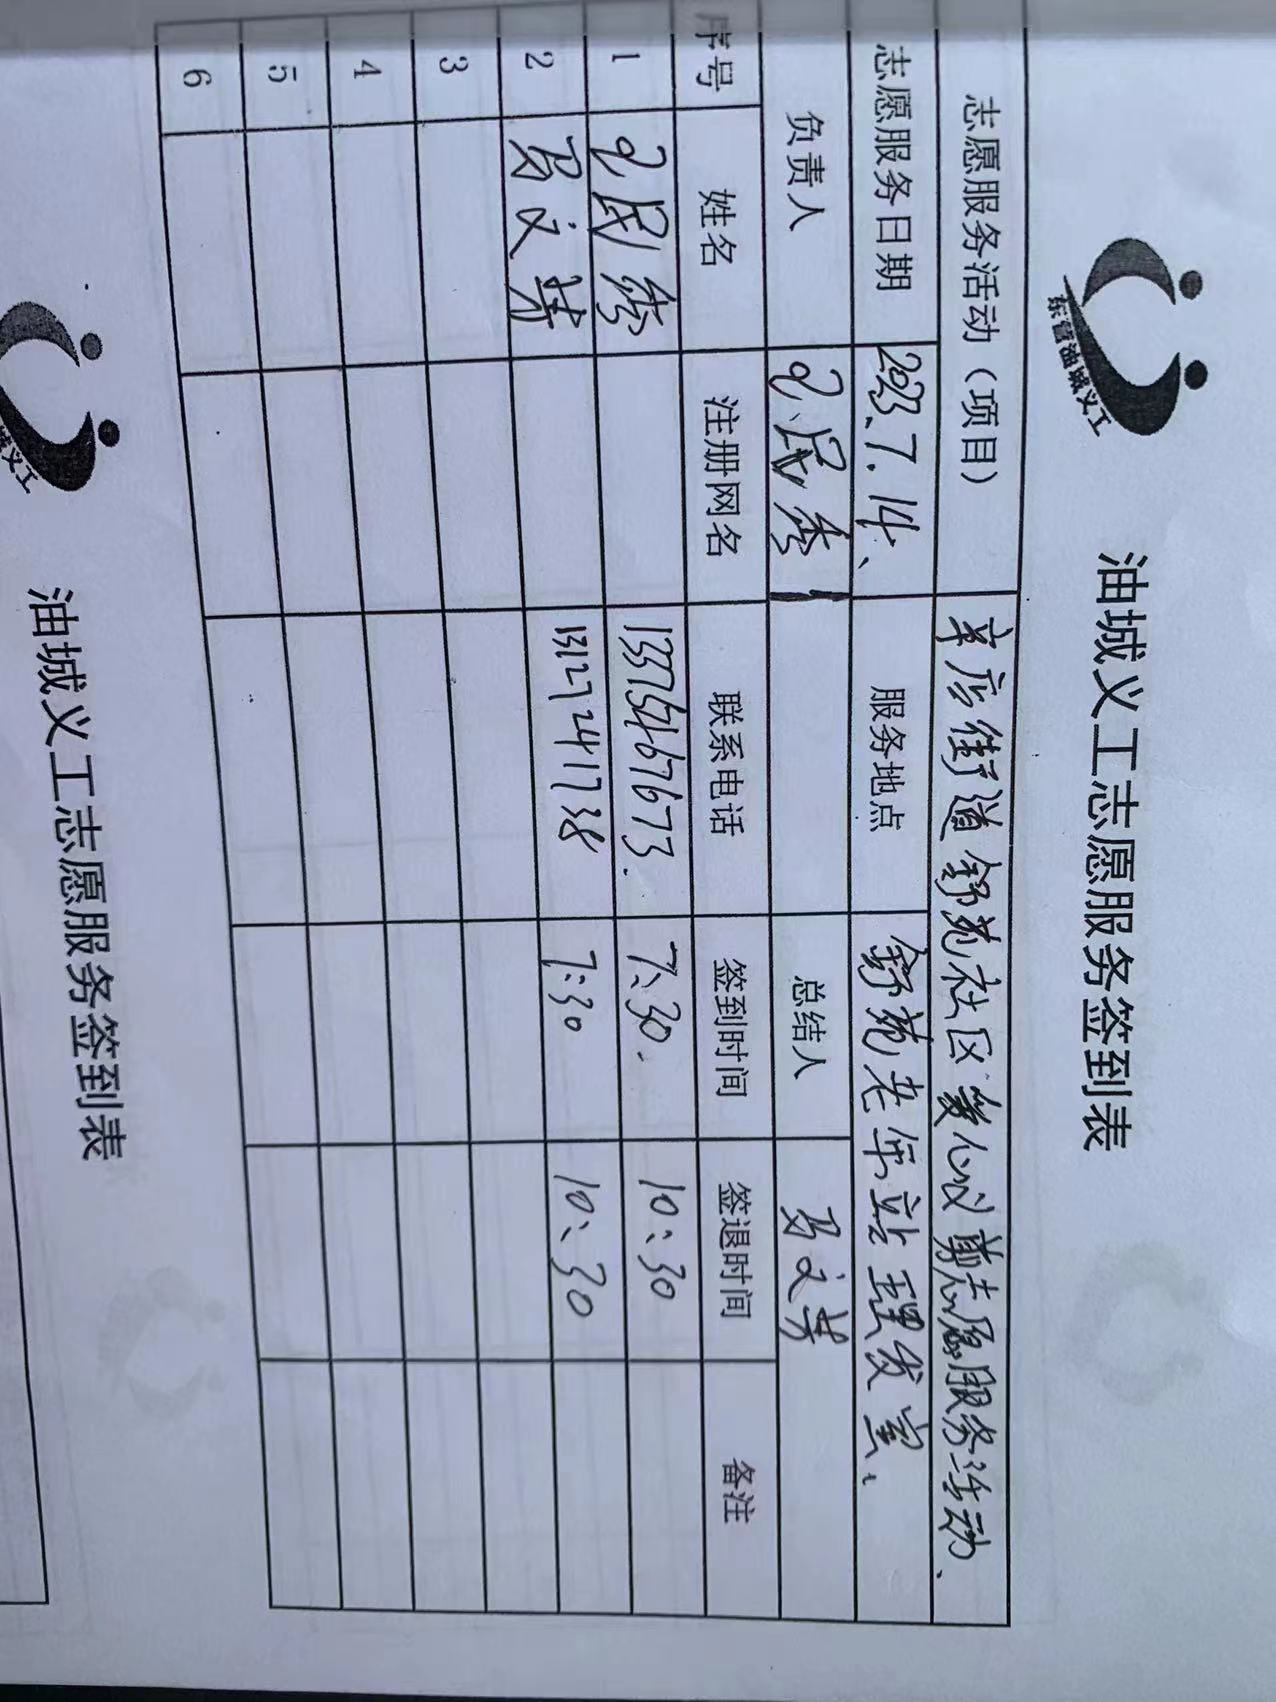 东营油城义工
油城义工志愿服务签到表
志愿服务活动（项目） 辛店街道舒苑社区爱心义剪志愿服务活动、
志愿服务日期 2023.7.14、 服务地点 舒苑老年站理发室、
负责人 民秀 总结人 文
序号 姓名 注册网名 联系电话 签到时间 签退时间 备注
1 民秀 13375467673. 7:30. 10:30
2 文 13127241738 7:30 10:30
3
4
5
6
油城义工志愿服务签到表